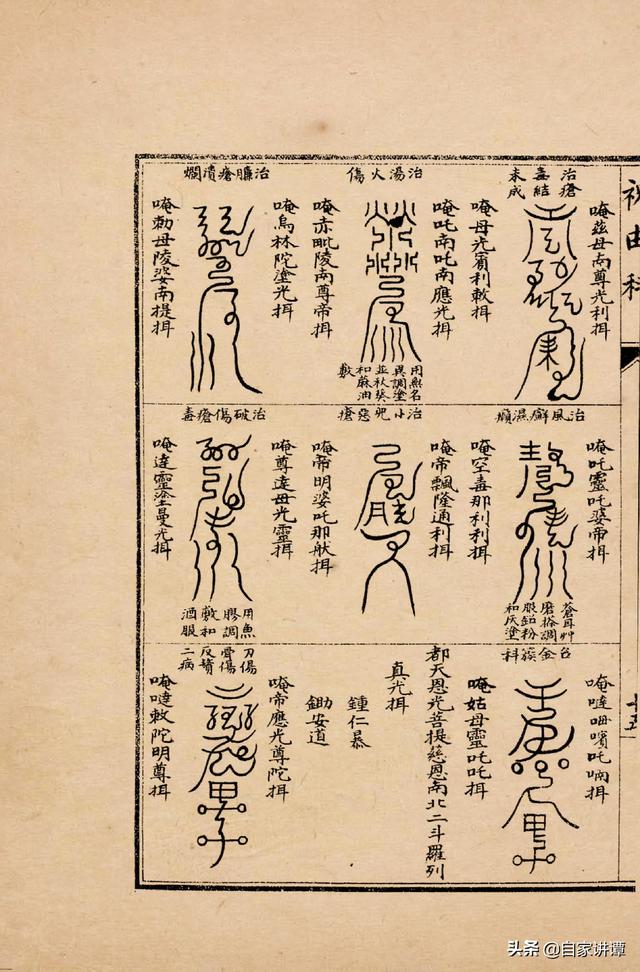 祝由科
治瘡
毒結
未成
唵茲母南尊光利挕
唵母光賓利敕挕
治湯火傷
唵吒南吒南應光挕
用無名
異調塗
並秋葵
和蔴油
敷
唵赤毗陵南尊帝挕
治臁瘡潰爛
唵烏林陀塗光挕
唵勅母陵婆南提挕
治風癬濕癩
唵吒靈吒婆帝挕
蒼耳艸
磨搽調
服鉛粉
和灰塗
唵空毒那利利挕
治小兒惡瘡
唵帝飄隆通利挕
唵帝明婆吒那猷挕
治破傷瘡毒
唵尊達母光靈挕
用魚
膠調
敷和
酒服
唵達靈塗曼光挕
台金簇科
唵噠㖼嚬吒喃挕
唵姑母靈吒吒挕
都天恩光菩提慈恩南北二斗羅列
真光挕
鍾仁暴
鋤安道
刀傷
骨傷
反贅
二病
唵帝應光尊陀挕
唵噠敕陀明尊挕
十五
头条 @自家讲谭